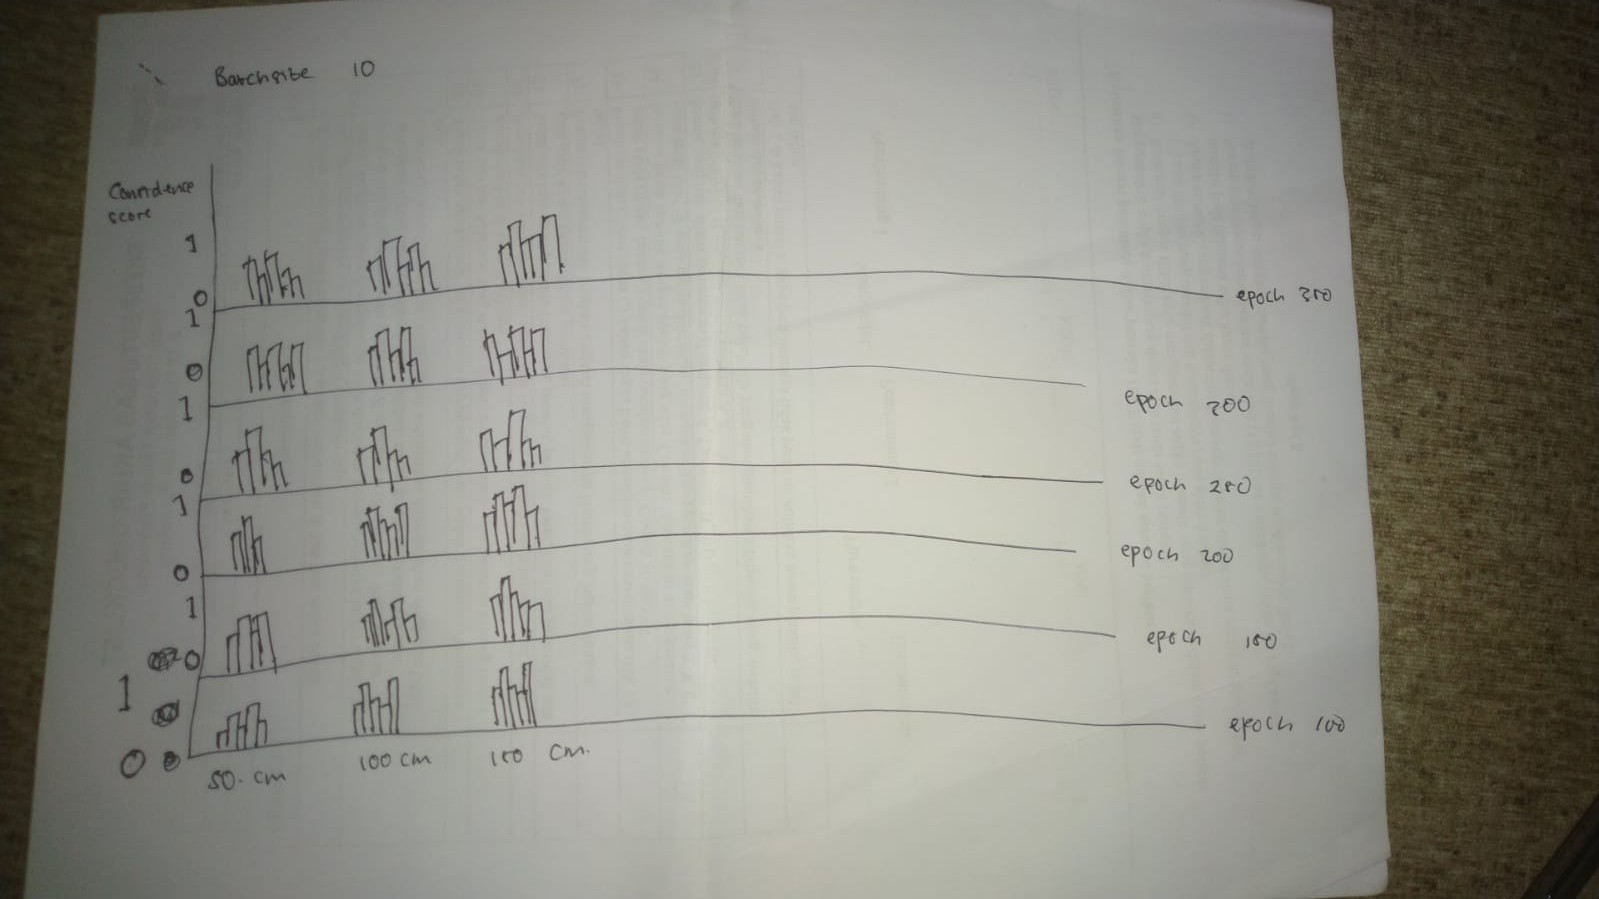 Batchsize 10
Confidence
score
1
0
1
epoch 350
0
1
epoch 300
0
1
epoch 250
0
epoch 200
1
0
epoch 150
1
0
epoch 100
50. cm 100 cm 150 cm.